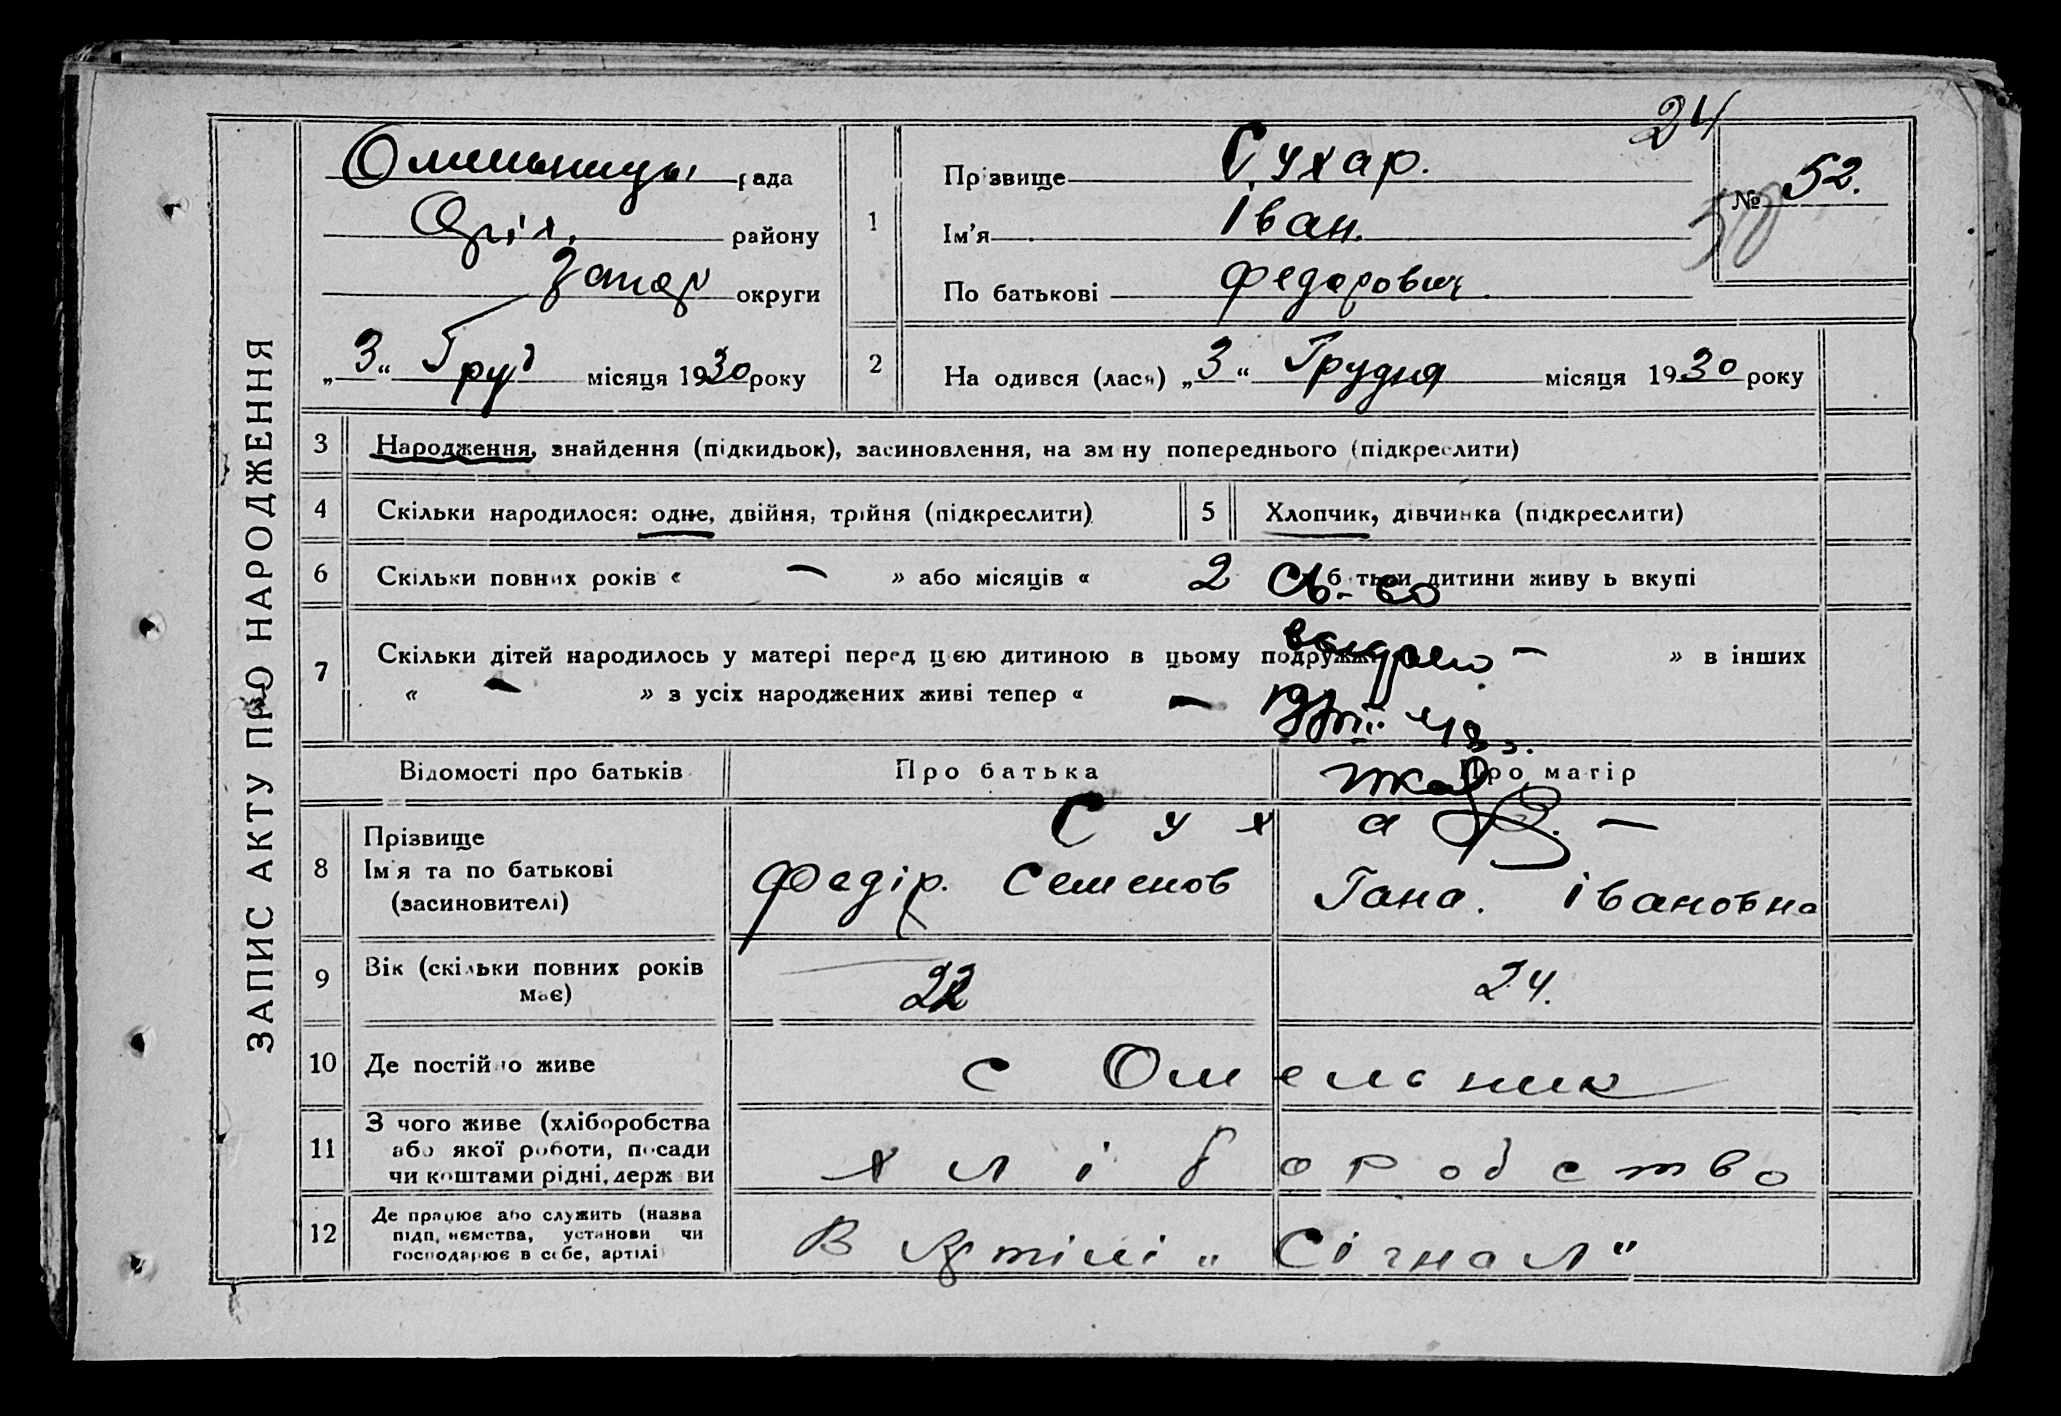 ЗАПИС АКТУ ПРО НАРОДЖЕННЯ
24
рада
району
Запор округи
„3“ Груд місяця 1930 року
1
Прізвище Сухар.
Ім'я Іван.
По батькові Федорович.
№ 52.
50
2
На одився (лася) „3“ Грудня місяця 1930 року
3 Народження, знайдення (підкидьок), засиновлення, на зм ну попереднього (підкреслити)
4 Скільки народилося: одне, двійня, трійня (підкреслити)
5 Хлопчик, дівчинка (підкреслити)
6 Скільки повних років « — » або місяців « 2 б тьки дитини живу ь вкупі
Св-во
7 Скільки дітей народилось у матері перед цією дитиною в цьому подружжі — » в інших
выдано
« — » з усіх народжених живі тепер « —
48 г.
Відомості про батьків
Про батька
Про матір
8 Прізвище
Ім'я та по батькові
(засиновителі)
Сухар. —
Федір. Семенов
Гана. Івановна
9 Вік (скільки повних років має)
22
24.
10 Де постійно живе
с Омельник
11 З чого живе (хліборобства
або якої роботи, посади
чи коштами рідні, держ ви
хліборобство
12 Де працює або служить (назва
підп, иємства, установи чи
господарює в себе, артілі
В Артілі „Сігнал"